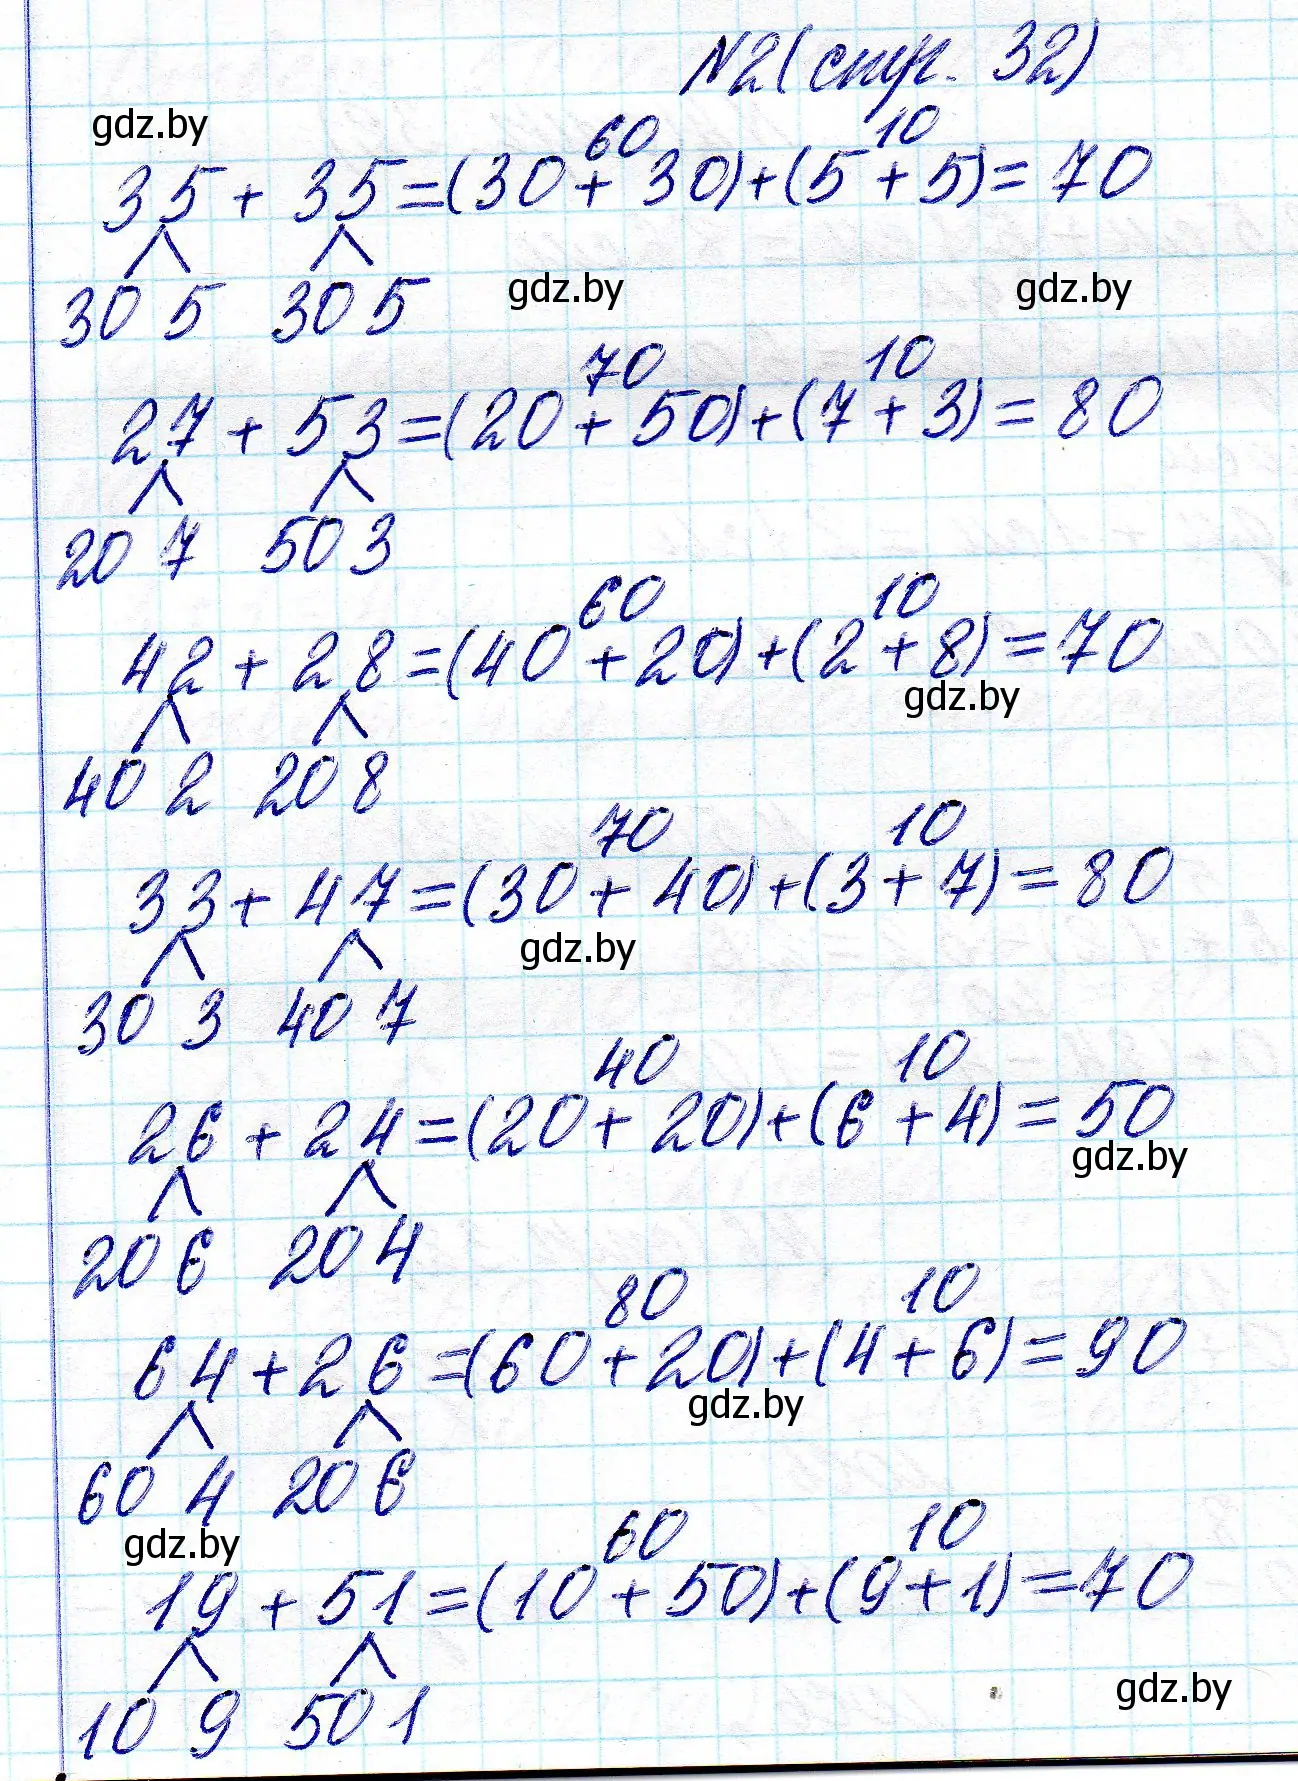 №2 (стр. 32)
gdz.by
60 10
35 + 35 = (30 + 30) + (5 + 5) = 70
30 5 30 5
gdz.by gdz.by
70 10
27 + 53 = (20 + 50) + (7 + 3) = 80
20 7 50 3
60 10
42 + 28 = (40 + 20) + (2 + 8) = 70
gdz.by
40 2 20 8
70 10
33 + 47 = (30 + 40) + (3 + 7) = 80
gdz.by
30 3 40 7
40 10
26 + 24 = (20 + 20) + (6 + 4) = 50
gdz.by
20 6 20 4
80 10
64 + 26 = (60 + 20) + (4 + 6) = 90
gdz.by
60 4 20 6
gdz.by
60 10
19 + 51 = (10 + 50) + (9 + 1) = 70
gdz.by
10 9 50 1